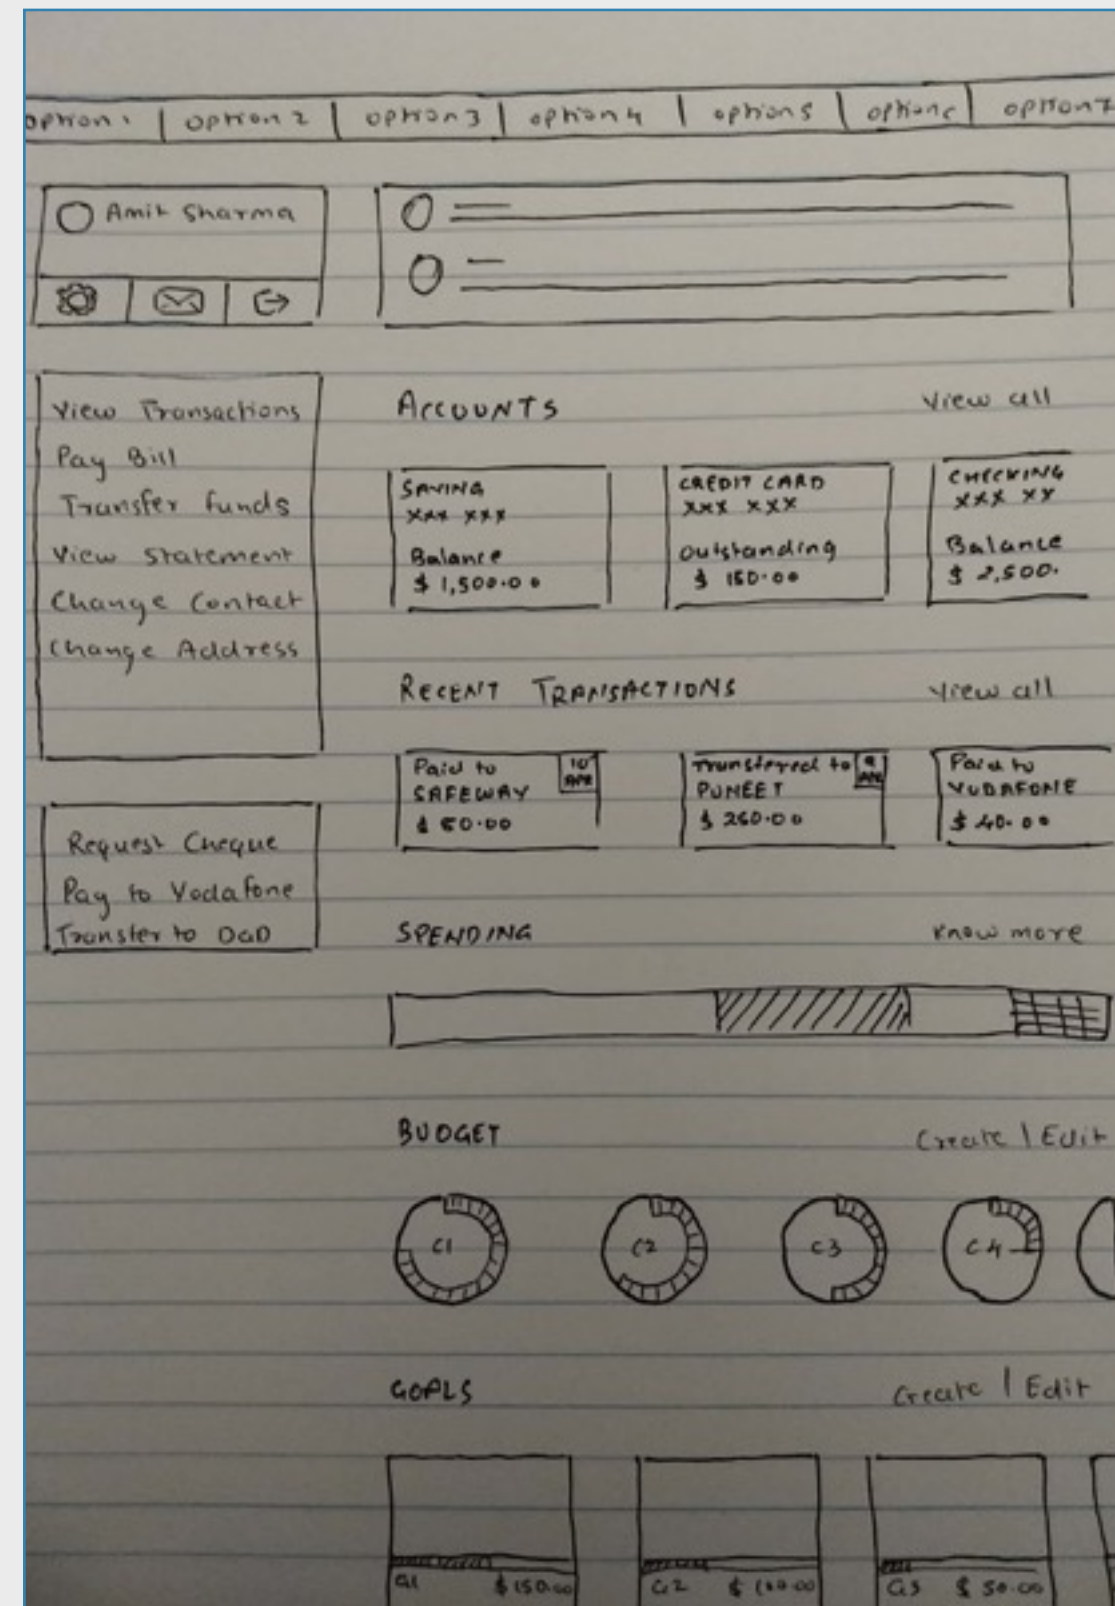 option 1 | option 2 | option 3 | option 4 | option 5 | option 6 | option 7
Amit Sharma
View Transactions
Pay Bill
Transfer funds
View Statement
Change Contact
Change Address
Request Cheque
Pay to Vodafone
Transfer to DaD
ACCOUNTS View all
SAVING
xxx xxx
Balance
$ 1,500.00
CREDIT CARD
xxx xxx
Outstanding
$ 150.00
CHECKING
xxx xx
Balance
$ 2,500.
RECENT TRANSACTIONS View all
Paid to
SAFEWAY
10
APR
Transferred to
PUNEET
9
APR
$ 260.00
Paid to
VODAFONE
$ 40.00
SPENDING Know more
BUDGET Create | Edit
C1 C2 C3 C4
GOALS Create | Edit
G1 $ 150.00
G2 $ 100.00
G3 $ 50.00